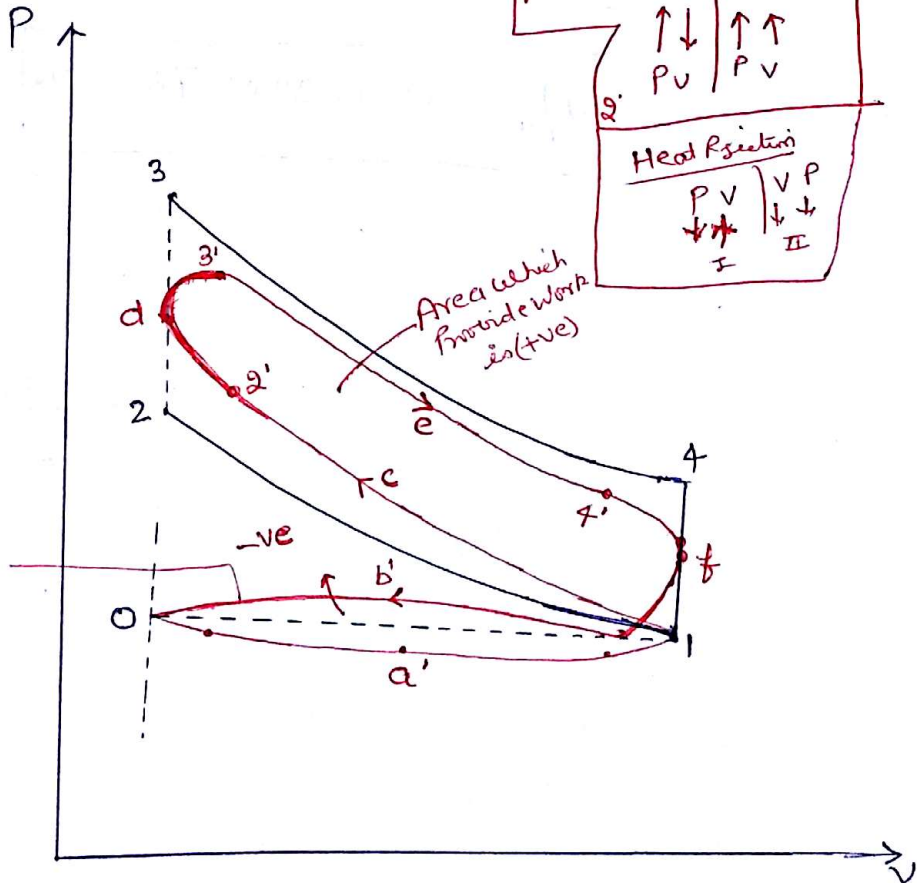 P
↑ ↓ | ↑ ↑
P V | P V
2.
Heat Rjection
P V | V P
↓ | ↓ ↓
I II
3
3'
Area which
Provide work
is (+ve)
d
2'
2
e
c
4
4'
-ve
b'
f
O
1
a'
V